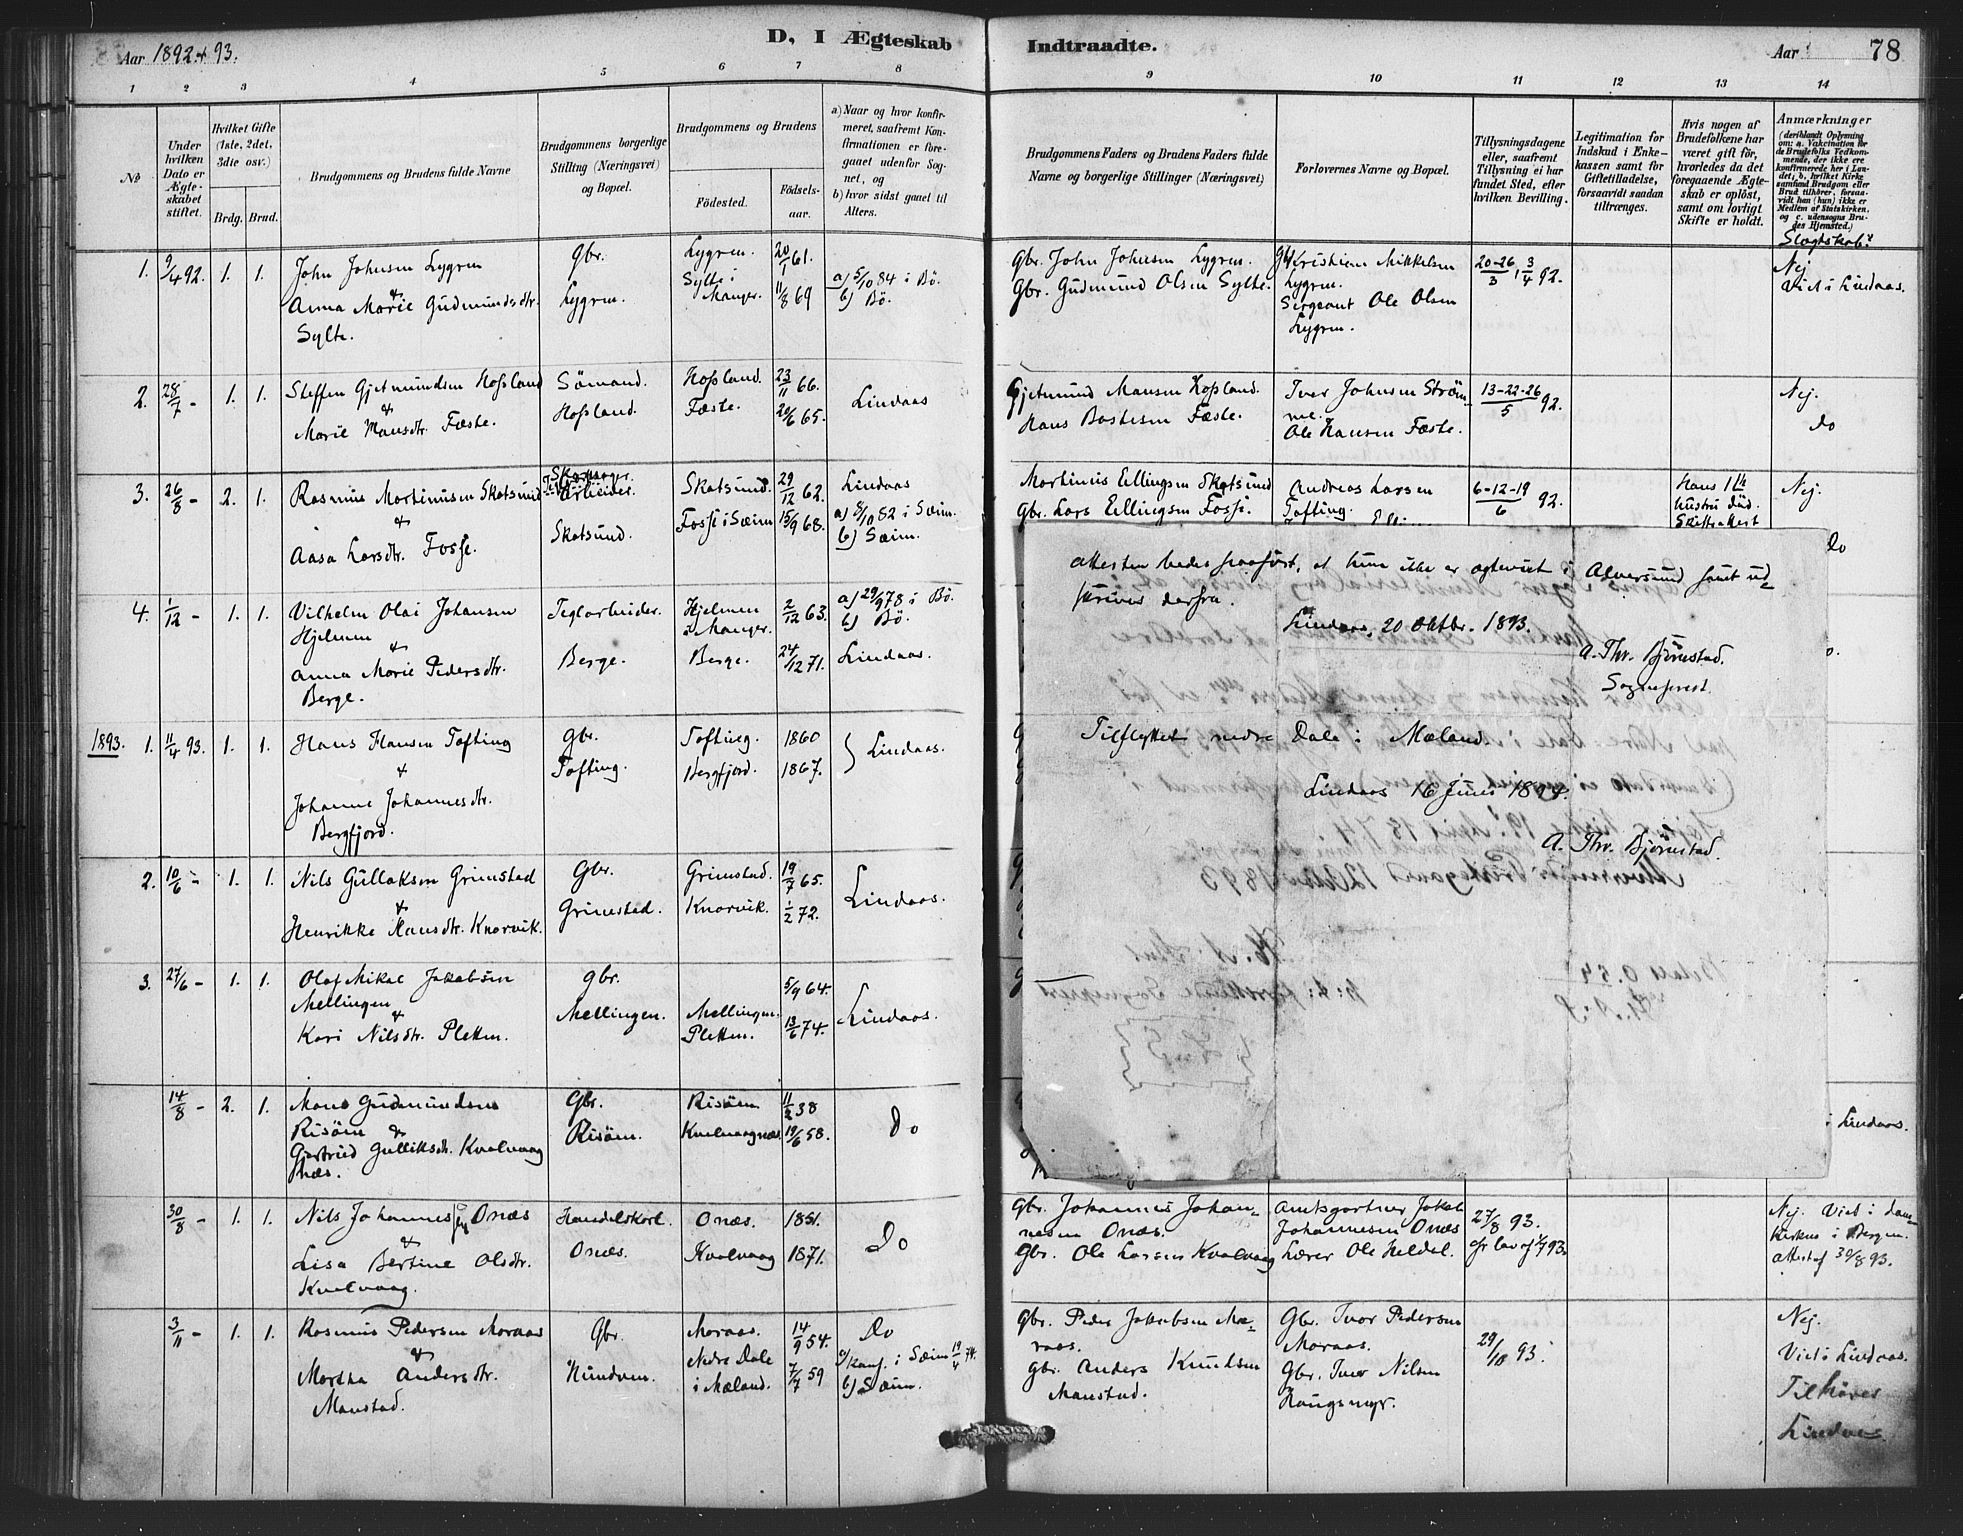 Aar 1892 + 93.
D, I Ægteskab
Indtraadte.
Aar
78
1 2 3 4 5 6 7 8 9 10 11 12 13 14
No
Under hvilken Dato er Ægteskabet stiftet.
Hvilket Gifte (1ste, 2det, 3die osv.)
Brdg. Brud.
Brudgommens og Brudens fulde Navne
Brudgommens borgerlige Stilling (Næringsvei) og Bopæl.
Brudgommens og Brudens
Födested.
Födselsaar.
a) Naar og hvor konfirmeret, saafremt Konfirmationen er foregaaet udenfor Sognet, og
b) hvor sidst gaaet til Alters.
Brudgommens Faders og Brudens Faders fulde Navne og borgerlige Stillinger (Næringsvei)
Forlovernes Navne og Bopæl.
Tillysningsdagene eller, saafremt Tillysning ei har fundet Sted, efter hvilken Bevilling.
Legitimation for Indskud i Enkekassen samt for Giftetilladelse, forsaavidt saadan tiltrænges.
Hvis nogen af Brudefolkene har været gift för, hvorledes da det foregaaende Ægteskab er oplöst, samt om lovligt Skifte er holdt.
Anmærkninger
(deriblandt Oplysning om: a. Vakcination for de Brudefolks Vedkommende, der ikke ere konfirmerede her i Landet; b, hvilket Kirkesamfund Brudgom eller Brud tilhörer, forsaavidt han (hun) ikke er Medlem af Statskirken, og c. udensogns Brudes Hjemsted.)
Slægtskab?
1. 9/4 92. 1. 1. John Johnsen Lygren
&
Anna Marie Gudmundsdtr.
Sylte.
Gbr.
Lygren.
Lygren.
Sylte i
Manger.
20/1 61.
11/8 69
a) 5/10 84 i Bö.
b) Bö.
Gbr. John Johnsen Lygren.
Gbr. Gudmund Olsen Sylte.
Gbr. Kristian Mikkelsen
Lygren.
Sergeant Ole Olsen
Lygren.
20-26/3, 3/4 92.
Nej
Viet i Lindaas.
2. 28/7 - 1. 1. Steffen Gjetmundsen Hopland
&
Marie Mansdtr. Fæste.
Sömand.
Hopland.
Hopland.
Fæste.
23/11 66.
20/6 65.
Lindaas
Gjetmund Mansen Hopland.
Hans Bastesen Fæste.
Iver Johnsen Ström-
me.
Ole Hansen Fæste.
13-22-26/5 92.
Nej.
Do
3. 26/8 - 2. 1. Rasmus Martinusen Skatsund
&
Aasa Larsdtr. Fosse.
Arbeider.
Skatsund.
Skatsund.
Fosse i Sæim
29/12 62.
15/9 68.
Lindaas
a) 8/10 82 i Sæim.
b) Sæim.
Martinus Ellingsen Skatsund
Gbr. Lars Ellingsen Fosse.
Andreas Larsen
Tofting.
6-12-19/6 92.
Hans 1ste
hustru död.
Skifteattest
Nej.
Do
4. 1/12 - 1. 1. Vilhelm Olai Johansen
Hjelmen
&
Anna Marie Pedersdtr.
Berge.
Teglarbeider.
Berge.
Hjelmen
i Manger.
Berge.
2/12 63.
24/12 71.
a) 29/9 78 i Bö.
b) Bö.
Lindaas.
attesten bedes paaført, at hun ikke er agteviet i Alversund samt ud-
skrives derfra.
Lindaas, 20 Oktbr. 1893.
A. Thr. Bjørnstad.
Sogneprest.
Tilflyttet nedre Dale i Mæland
Lindaas 16 Juni 1894.
A. Thr. Bjørnstad.
1893. 1. 11/4 93. 1. 1. Hans Hansen Tofting
&
Johanne Johannesdtr.
Bergfjord.
Gbr.
Tofting.
Tofting.
Bergfjord.
1860
1867.
Lindaas.
2. 10/6 - 1. 1. Nils Gullaksen Grimstad
&
Henrikke Hansdtr. Knarvik.
Gbr.
Grimstad.
Grimstad.
Knarvik.
19/7 65.
1/2 72.
Lindaas.
3. 27/6 - 1. 1. Olaf Mikal Jakobsen
Mellingen
&
Kari Nilsdtr. Pletten.
Gbr.
Mellingen.
Mellingen.
Pletten.
5/9 64.
13/6 74.
Lindaas.
14/8 - 2. 1. Mons Gudmundsen
Risöen &
Gjertrud Gulliksdtr. Kvalvaag
næs.
Gbr.
Risöen.
Risöen
Kvalvaagnæs.
11/2 38
19/6 58.
Do
Lindaas.
30/8 - 1. 1. Nils Johannessen Onæs
&
Lisa Bertine Olsdtr.
Kvalvaag.
Handelskarl.
Onæs.
Onæs.
Kvalvaag
1851.
1871.
Do
Gbr. Johannes Johan-
nesen Onæs.
Gbr. Ole Larsen Kvalvaag
Amtsgartner Jakob
Johannesen Onæs
Lærer Ole Heldal.
27/8 93.
Nej. Viet i Dom-
kirken i Bergen.
Attest af 30/8 93.
3/11 - 1. 1. Rasmus Pedersen Moraas
&
Martha Andersdtr.
Manstad.
Gbr.
Hundven.
Moraas.
Nedre Dale
i Mæland.
14/9 54.
7/7 59
Do
a) Konf. i Sæim 19/4 74.
b) Sæim.
Gbr. Peder Jakobsen Mo-
raas.
Gbr. Anders Knudsen
Manstad.
Gbr. Ivar Pedersen
Moraas.
Gbr. Iver Nilsen
Haugsmyr.
29/10 93.
Nej.
Viet i Lindaas.
Tilhörer
Lindaas.